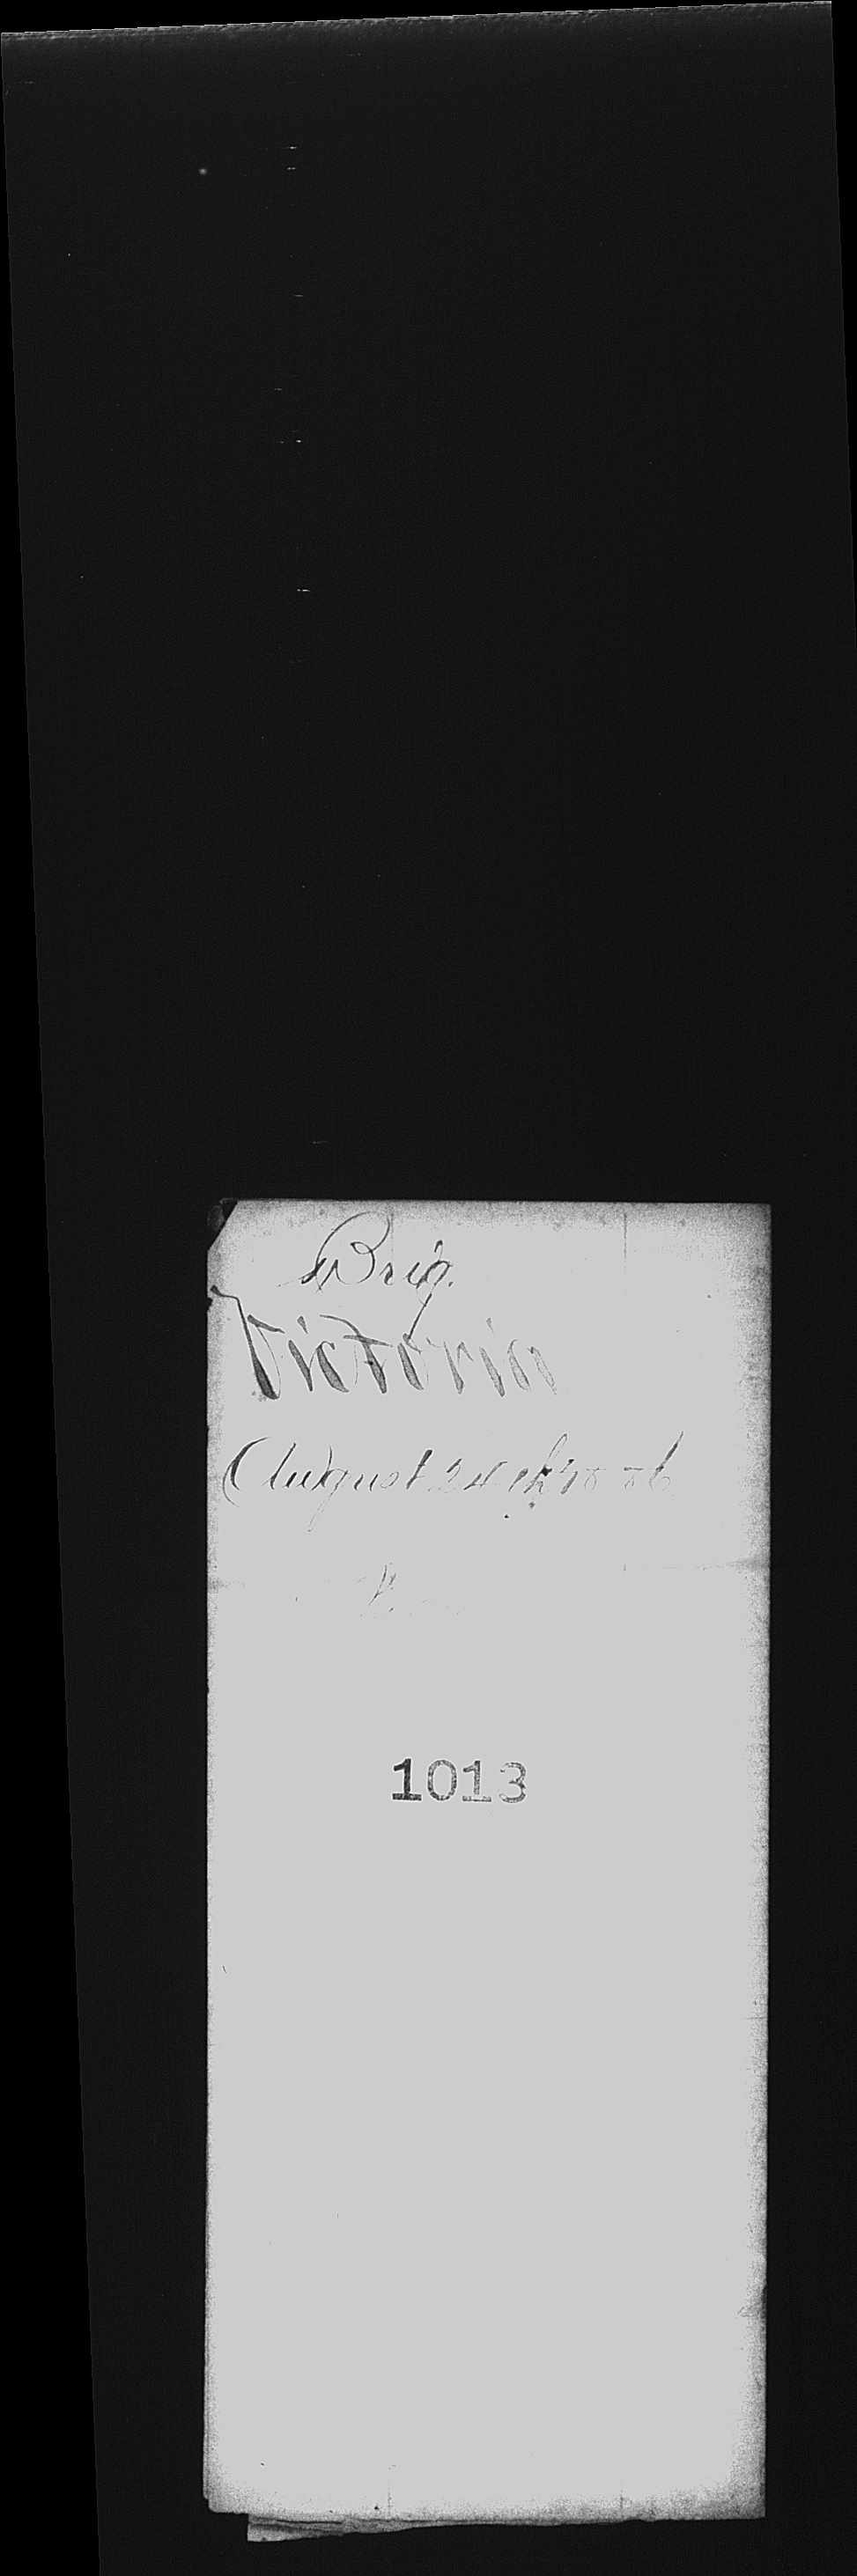 Brig.
Victoria
August 24th 1886
1013